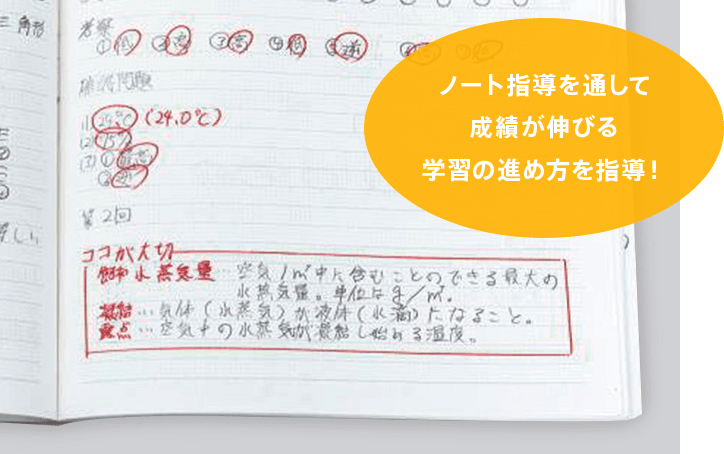 三角形
考察
①低 ②高 ③高 ④低 ⑤逆
練習問題
(1) 24℃ (24.0℃)
(2) 75%
(3) ①
②逆
第2回
ココが大切
飽和水蒸気量…空気1m³中に含むことのできる最大の
水蒸気量。単位はg/m³.
凝結…気体(水蒸気)が液体(水滴)になること。
露点…空気中の水蒸気が凝結し始める温度。
ノート指導を通して
成績が伸びる
学習の進め方を指導!